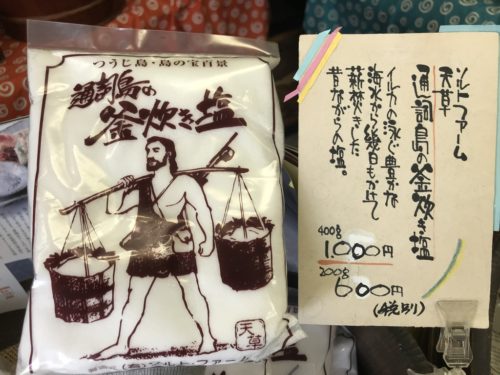 つうじ島・島の宝百景
通詞島の
釜炊き塩
天草
(有)ソルト・ファーム
ソルトファーム
天草
通詞島の釜炊き塩
イルカの泳ぐ豊かな
海水から幾日もかけて
薪焚きした
昔ながらの塩。
400g
1000円
200g
600円
(税別)